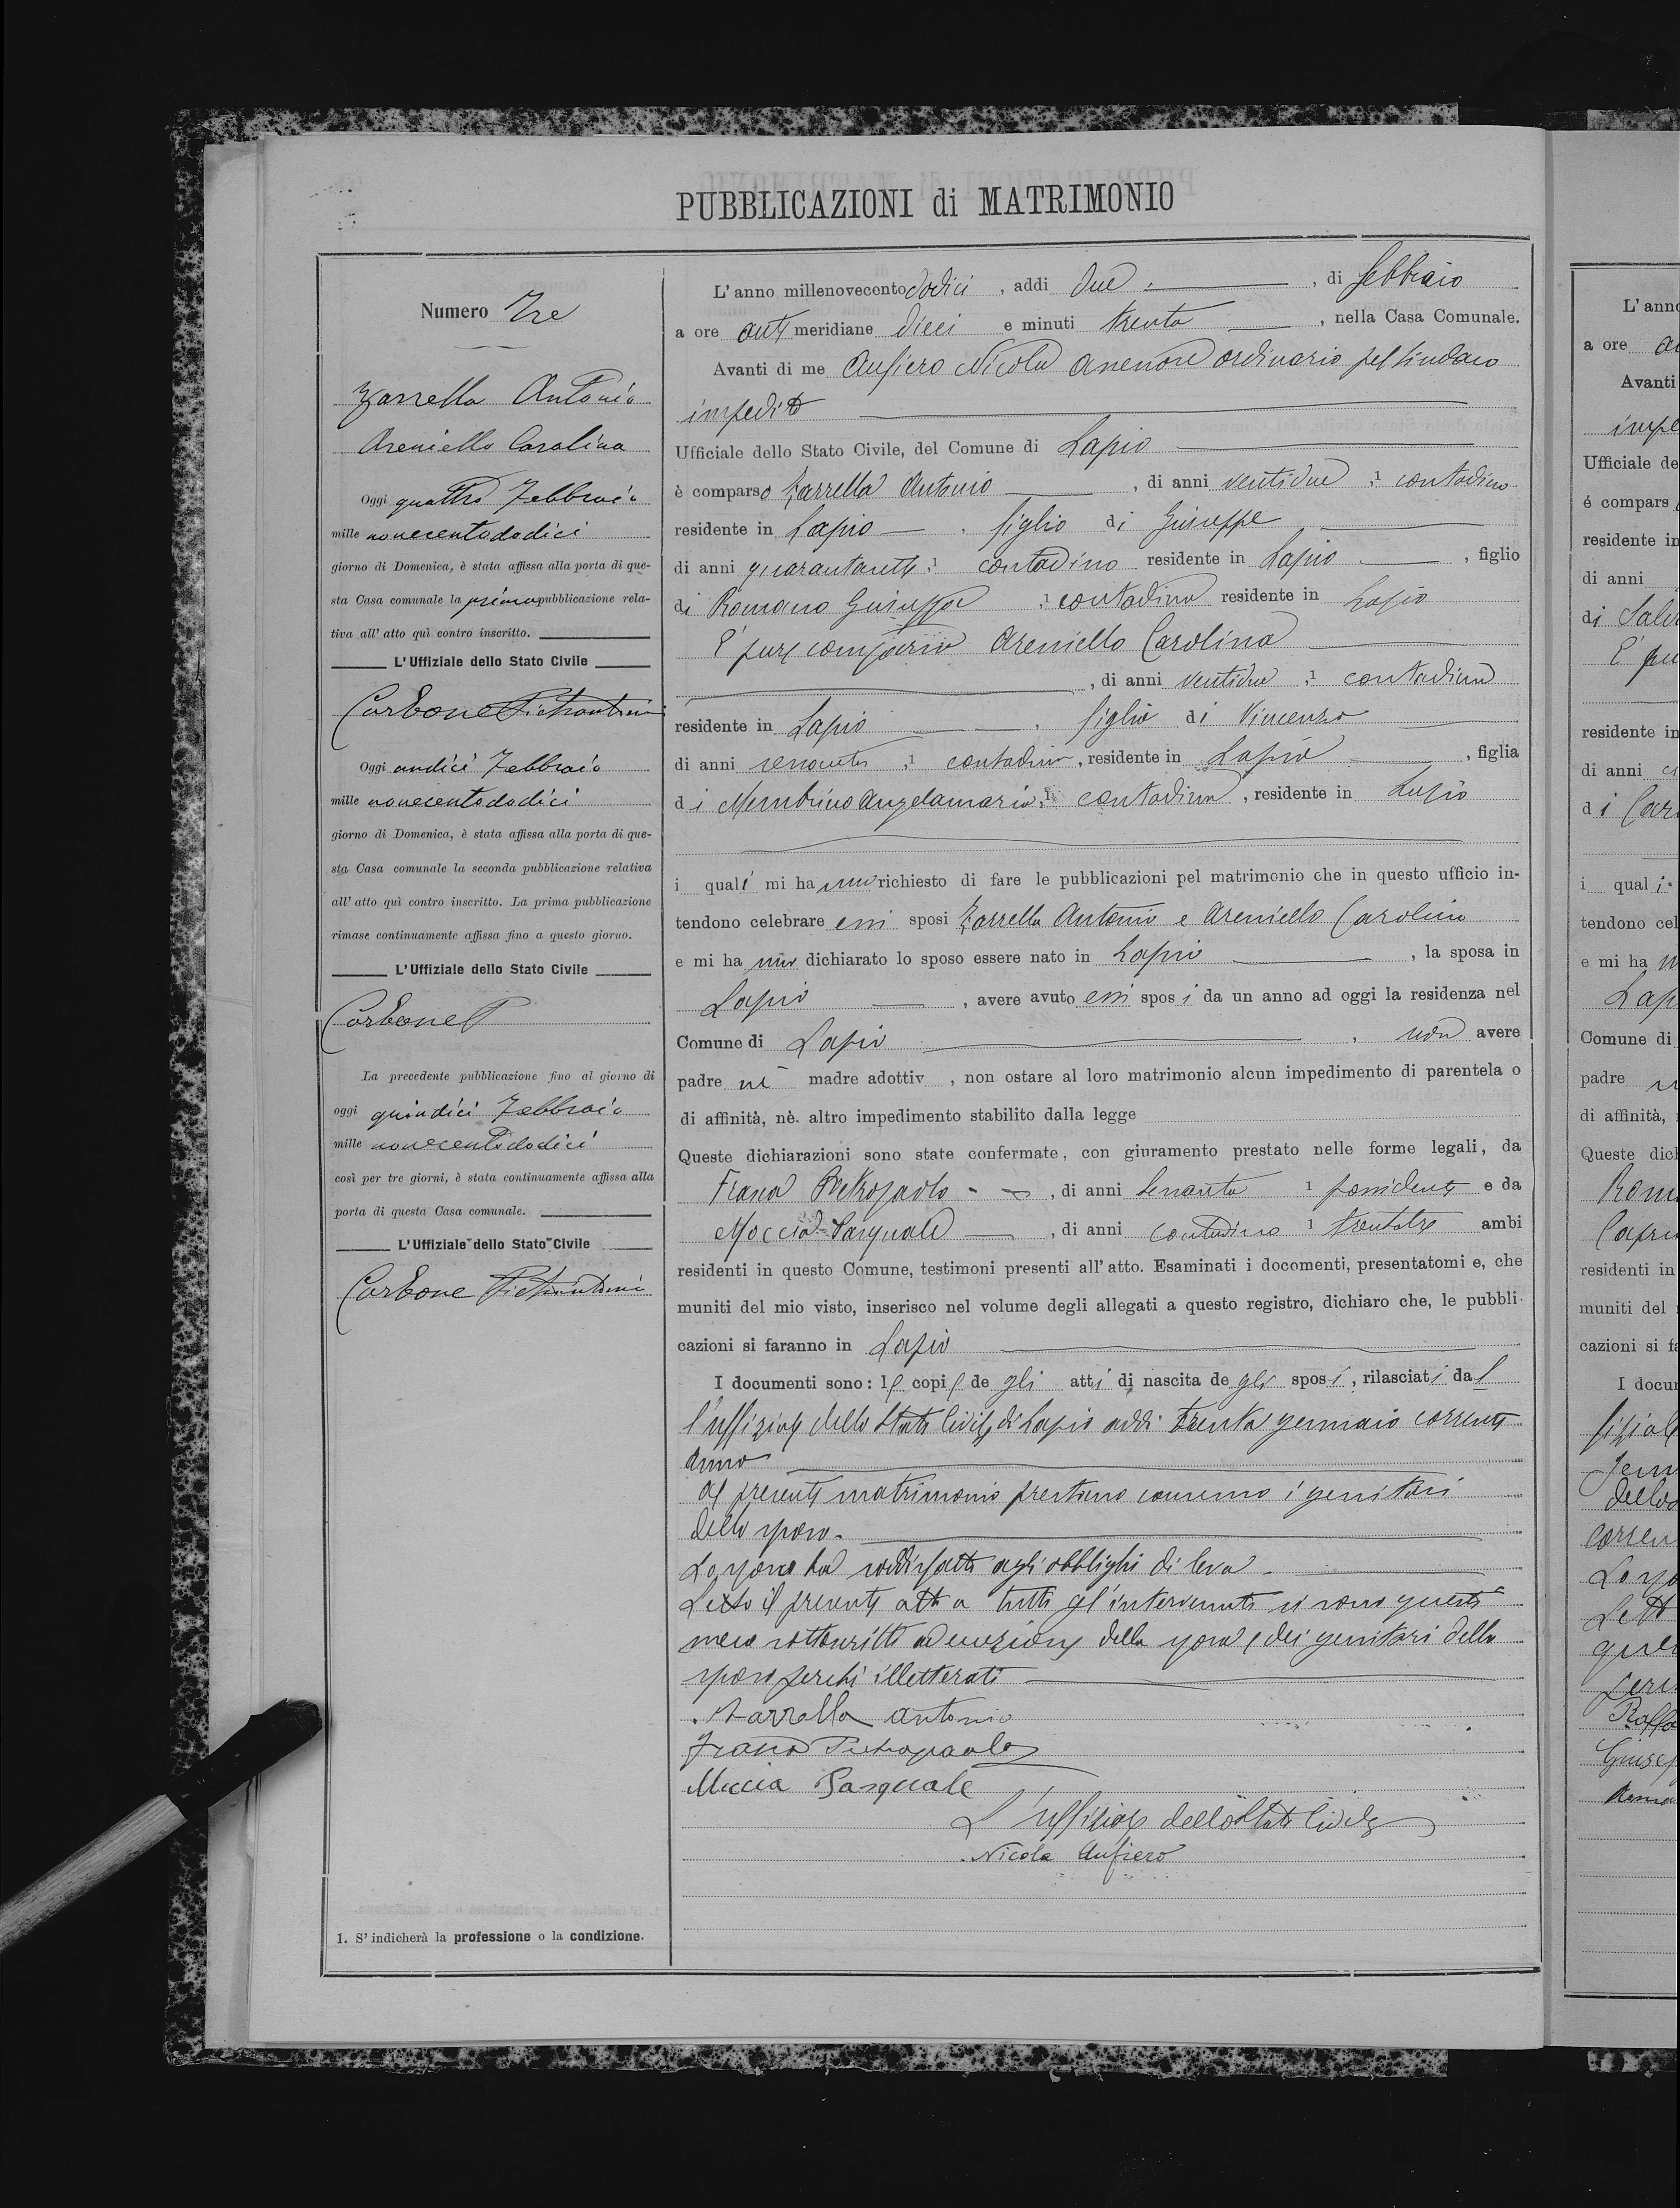 PUBBLICAZIONI di MATRIMONIO
Numero Tre
Zarrella Antonio
Areniello Carolina
Oggi quattro Febbraio
mille novecentododici
giorno di Domenica, è stata affissa alla porta di que-
sta Casa comunale la prima pubblicazione rela-
tiva all' atto quì contro inscritto.
L' Uffiziale dello Stato Civile
Carbone Pietrantonio
Oggi undici Febbraio
mille novecentododici
giorno di Domenica, è stata affissa alla porta di que-
sta Casa comunale la seconda pubblicazione relativa
all' atto quì contro inscritto. La prima pubblicazione
rimase continuamente affissa fino a questo giorno.
L' Uffiziale dello Stato Civile
Carbone P
La precedente pubblicazione fino al giorno di
oggi quindici Febbraio
mille novecentododici
così per tre giorni, è stata continuamente affissa alla
porta di questa Casa comunale.
L' Uffiziale dello Stato Civile
Carbone Pietrantonio
1. S' indicherà la professione o la condizione.
L' anno millenovecento dodici , addi due , di febbraio
a ore anti meridiane dieci e minuti trenta , nella Casa Comunale.
Avanti di me Aufiero Nicola assessore ordinario pel Sindaco
impedito
Ufficiale dello Stato Civile, del Comune di Lapio
è comparso Zarrella Antonio , di anni ventidue , 1 contadino
residente in Lapio , figlio di Giuseppe ,
di anni quarantasette , 1 contadino residente in Lapio , figlio
di Romano Giuseppa , 1 contadina residente in Lapio
E' pure comparsa Areniello Carolina
, di anni ventidue , 1 contadina
residente in Lapio , figlia di Vincenzo
di anni sessanta , 1 contadino , residente in Lapio , figlia
di Membrino Angelamaria , 1 contadina , residente in Lapio
i quali mi hanno richiesto di fare le pubblicazioni pel matrimonio che in questo ufficio in-
tendono celebrare essi sposi Zarrella Antonio e Areniello Carolina
e mi ha nno dichiarato lo sposo essere nato in Lapio , la sposa in
Lapio , avere avuto essi spos i da un anno ad oggi la residenza nel
Comune di Lapio , non avere
padre nè madre adottiv , non ostare al loro matrimonio alcun impedimento di parentela o
di affinità, nè. altro impedimento stabilito dalla legge
Queste dichiarazioni sono state confermate, con giuramento prestato nelle forme legali, da
Frasca Pietropaolo , di anni sessanta 1 possidente e da
Moccia Pasquale , di anni contadino 1 trentatre ambi
residenti in questo Comune, testimoni presenti all' atto. Esaminati i documenti, presentatomi e, che
muniti del mio visto, inserisco nel volume degli allegati a questo registro, dichiaro che, le pubbli-
cazioni si faranno in Lapio
I documenti sono: le copie de gli atti di nascita de gli spos i , rilasciati dal
l'uffiziale dello Stato Civile di Lapio addì trenta gennaio corrente
anno
Al presente matrimonio prestano consenso i genitori
dello sposo.
Lo sposo ha soddisfatto agli obblighi di leva.
Letto il presente atto a tutti gl'intervenuti si sono questi
meco sottoscritti ad eccezione della sposa e dei genitori dello
sposo perchè illetterati
Zarrella Antonio
Frasca Pietropaolo
Miccia Pasquale
L'uffiziale dello Stato Civile
Nicola Aufiero